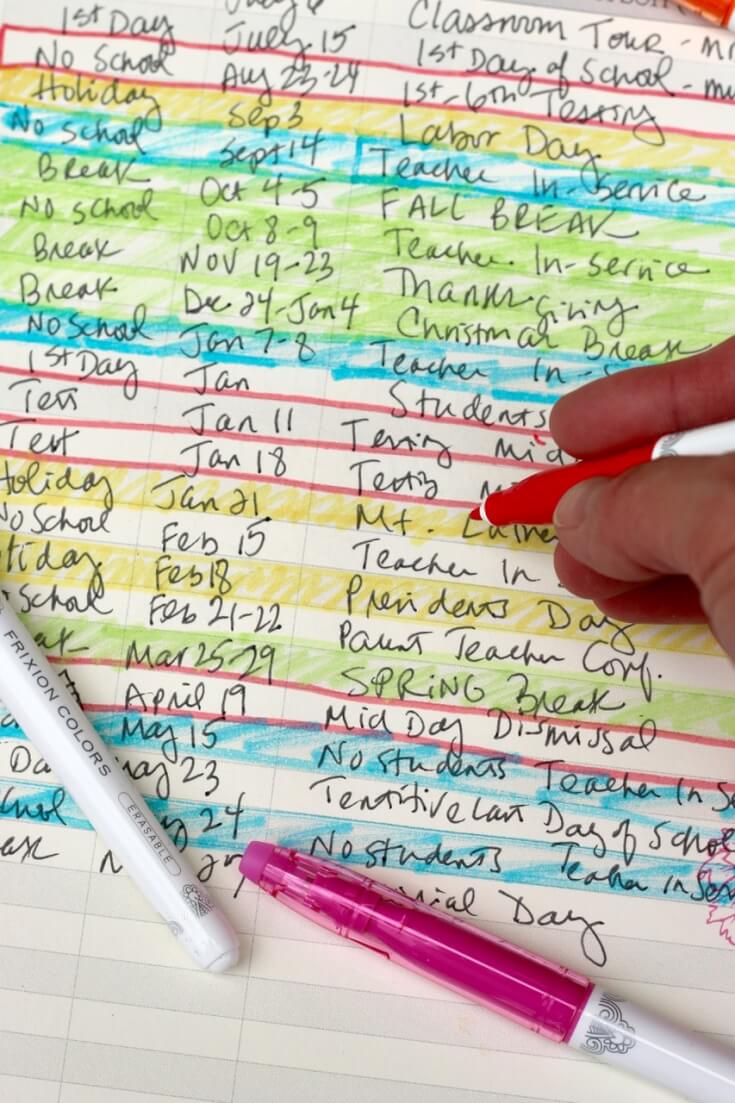 July 6 Classroom Tour -
1st Day July 15 1st Day of School -
No School Aug 23-24 1st-6th Testing
Holiday Sep 3 Labor Day
No School Sept 14 Teacher In-Service
Break Oct 4-5 FALL BREAK
No School Oct 8-9 Teacher In-Service
Break NOV 19-23 Thanksgiving
Break Dec 24-Jan 4 Christmas Break
No School Jan 7-8 Teacher In-S
1st Day Jan Students
Test Jan 11 Testing Mid
Test Jan 18 Testing
Holiday Jan 21 Mt.
No School Feb 15 Teacher In
Feb 18 Presidents Day
School Feb 21-22 Parent Teacher Conf.
Mar 25-29 SPRiNG Break
April 19 Mid Day Dismissal
May 15 No students Teacher In Se
Da May 23 Tentitive last Day of School
24 No students Teacher in Serv
Day
FRIXION COLORS
ERASABLE